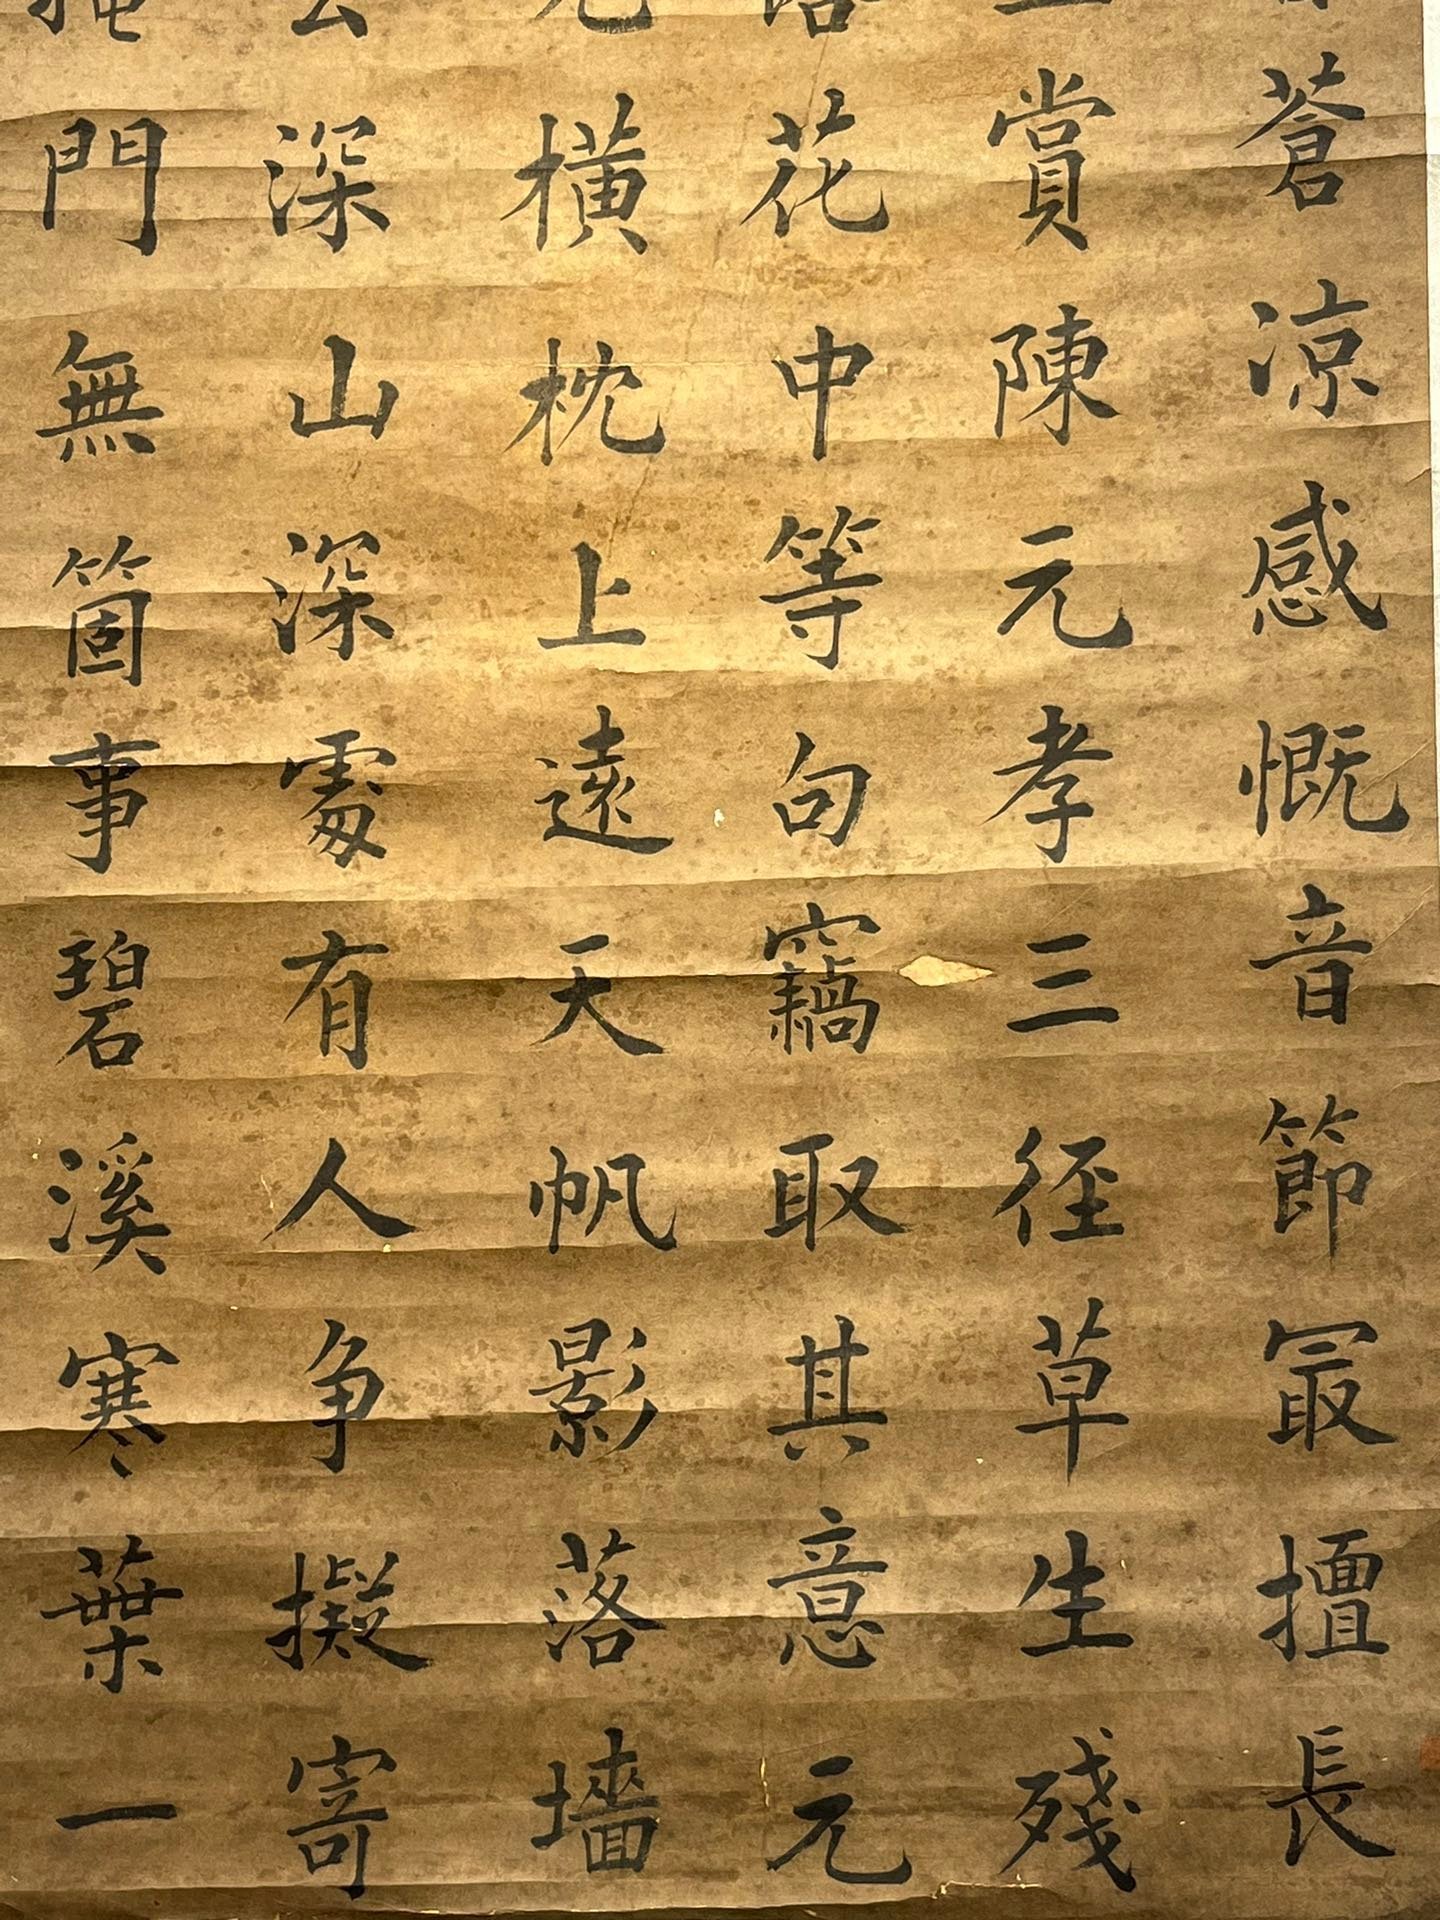 蒼涼感慨音節冣擅長
賞陳元孝三徑草生殘
落花中等句竊取其意元
橫枕上遠天帆影落墻
深山深處有人争擬寄
掩門無箇事碧溪寒葉一